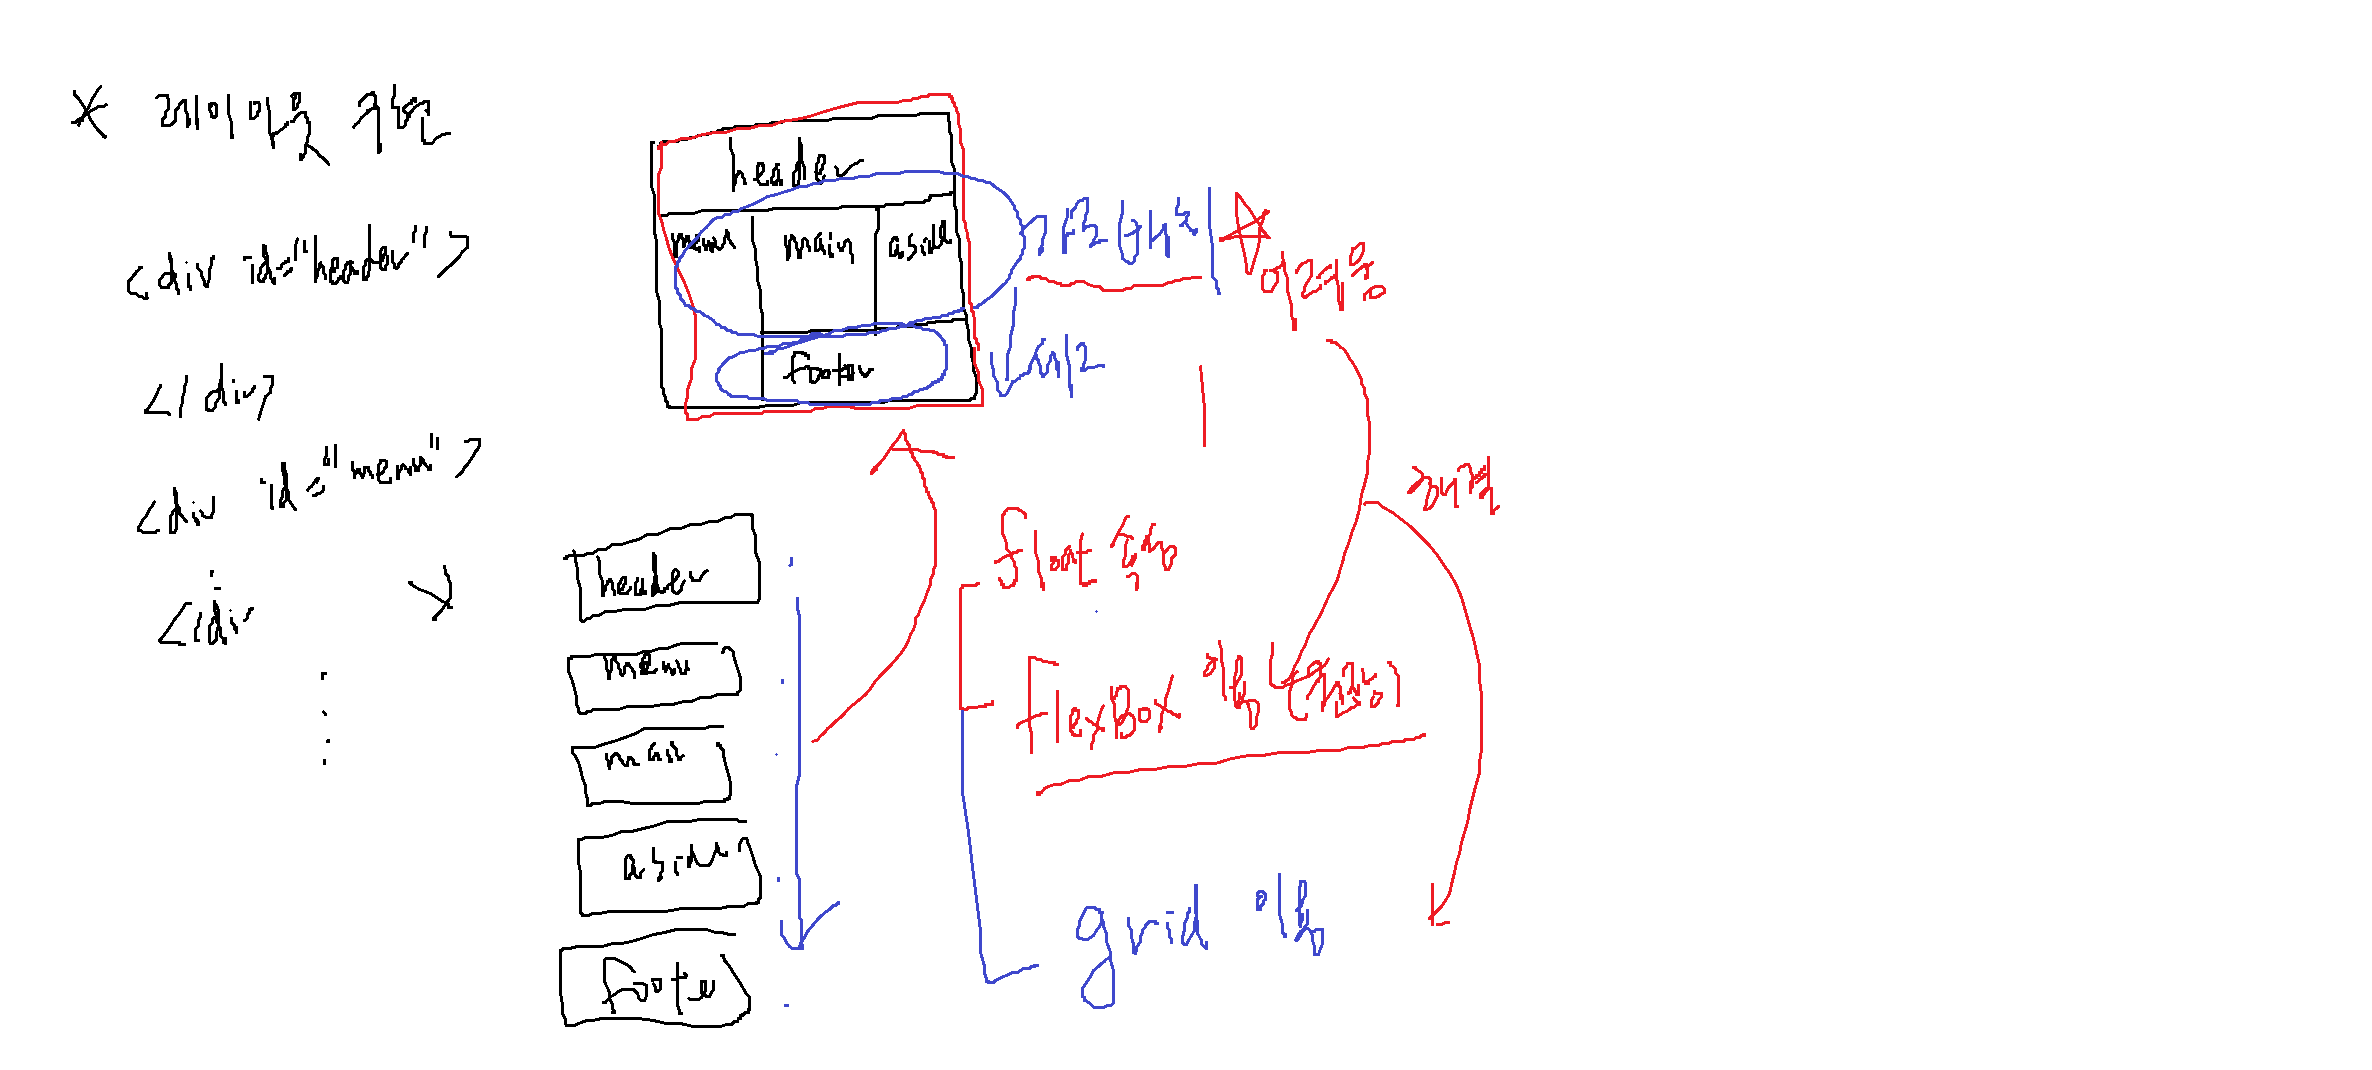 * 레이아웃 구현
<div id="header">
</div>
<div id="menu">
</div
header
menu main aside
footer
가로 배치
어려움
세로
해결
header
menu
main
aside
footer
float 속성
FlexBox 이용 (권장)
grid 이용